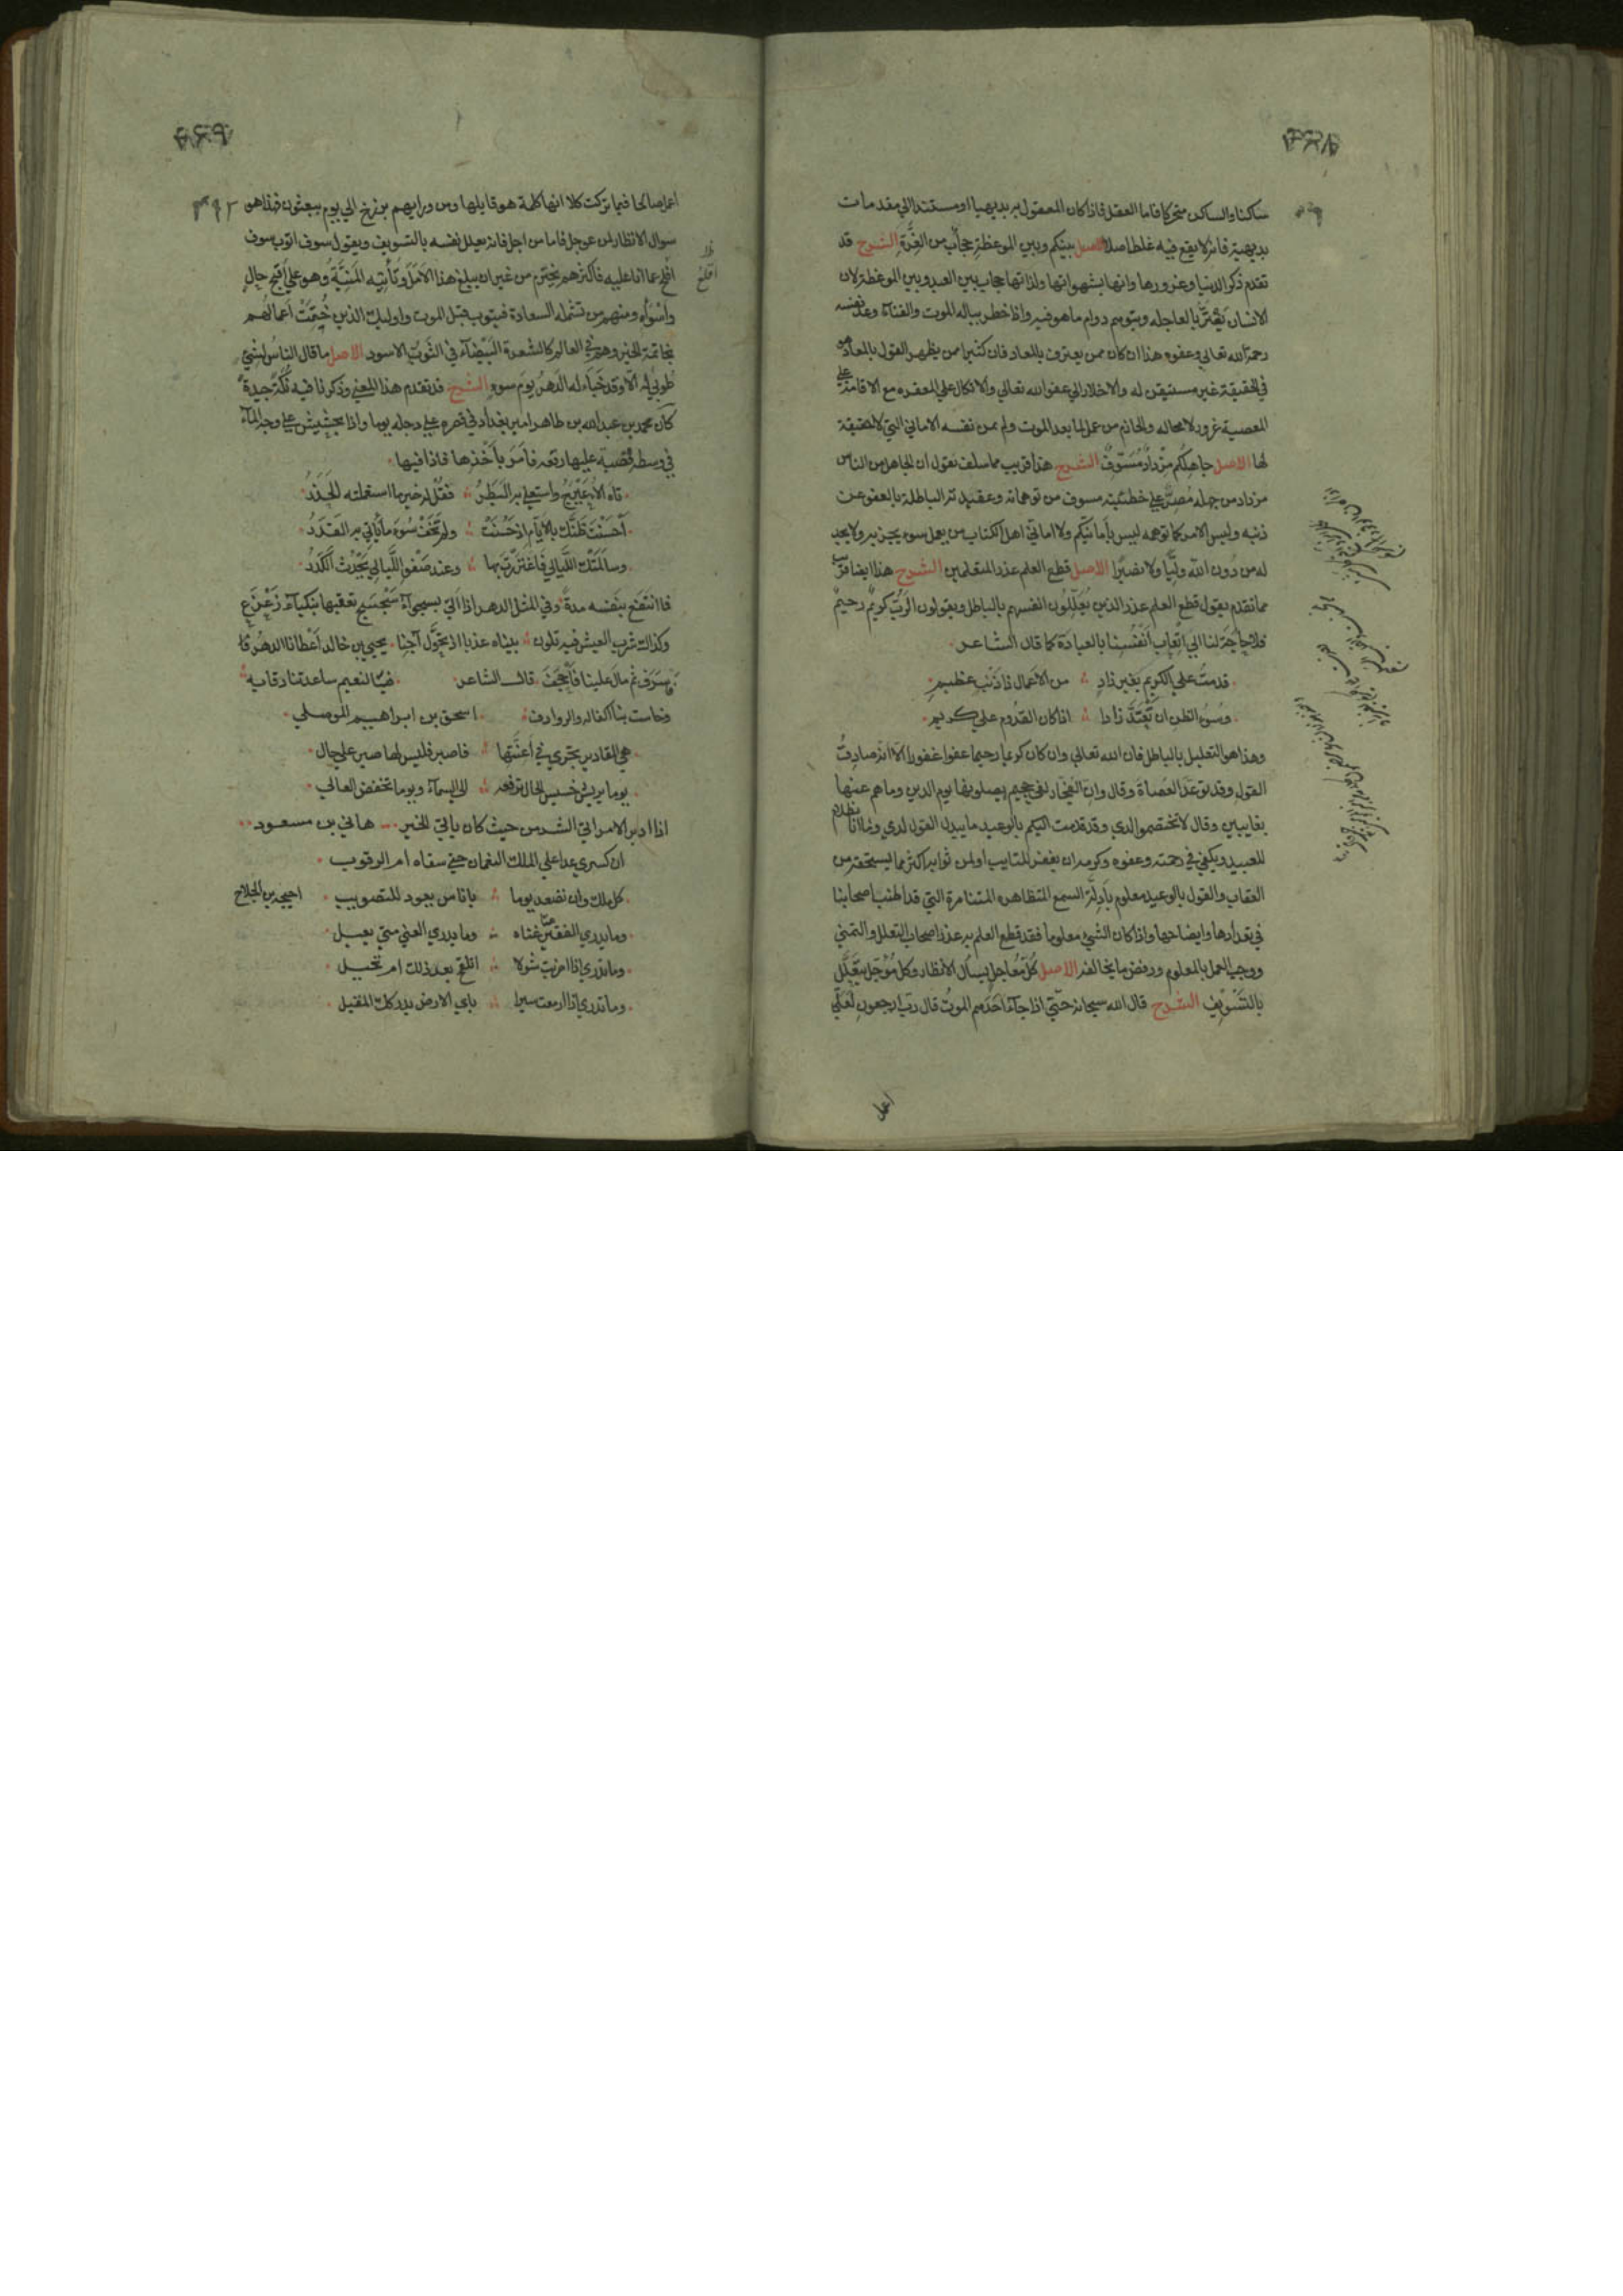 ساكنا والساكن متحركا فاما العقل فاذا كان المعقول به بديهيا او مستندا الي مقدمات
بديهية فانه لا يقع فيه غلط اصلا الاصل بينكم وبين الموعظة حجاب من الغرة الشرح قد
تقدم ذكر الدنيا وغرورها وانها بشهواتها ولذاتها حجاب بين العبد وبين الموعظة لان
الانسان يغتر بالعاجله ويتوهم دوام ما هو فيه واذا خطر بباله الموت والفناء وعد نفسه
رحمة الله تعالي وعفوه هذا ان كان ممن يعترف بالمعاد فان كثيرا ممن يظهر القول بالمعاد هو
في الحقيقة غير مستيقن له والاخلاد الي عفو الله تعالي والاتكال علي المغفره مع الاقامة علي
المعصية غرور لا محاله والحازم من عمل لما بعد الموت ولم يمن نفسه الاماني التي لا حقيقة
لها الاصل جاهلكم مزداد مسوف الشرح هذا قريب مما سلف نقول ان الجاهل من الناس
مزداد من جهله مصر علي خطيئته مسوف من توهماته وعقيدته الباطلة بالعفو عن
ذنبه وليس الامر كما توهمه ليس بأمانيكم ولا اماني اهل الكتاب من يعمل سوء يجز به ولا يجد
له من دون الله وليا ولا نصيرا الاصل قطع العلم عذر المتعلمين الشرح هذا ايضا قريب
مما تقدم يقول قطع العلم عذر الذين يعللون انفسهم بالباطل ويقولون الرب كريم رحيم
فلا حاجة لنا الي اتعاب انفسنا بالعبادة كما قال الشاعر
قدمت علي الكريم بغير زاد من الاعمال ذا ذنب عظيم
وسوء الظن ان تعتد زادا اذا كان القدوم علي كريم
وهذا هو التعليل بالباطل فان الله تعالي وان كان كريما رحيما عفوا غفورا الا انه صادق
القول وقد توعد العصاة وقال وان الفجار لفي جحيم يصلونها يوم الدين وما هم عنها
بغايبين وقال لا تختصموا لدي وقد قدمت اليكم بالوعيد ما يبدل القول لدي وما انا بظلام
للعبيد ويكفي في رحمته وعفوه وكرمه ان يغفر للتايب او لمن ثوابه اكثر مما يستحقه من
العقاب والقول بالوعيد معلوم بأدلة السمع المتظاهره المتناصرة التي قد اطنب اصحابنا
في تعدادها وايضاحها واذا كان الشيء معلوما فقد قطع العلم به عذر اصحاب التعلل والتمني
ووجب العمل بالمعلوم ورفض ما يخالفه الاصل كل معاجل يسأل الانظار وكل مؤجل يتعلل
بالتسويف الشرح قال الله سبحانه حتي اذا جاء احدهم الموت قال رب ارجعون لعلي
اعمل
اعمل صالحا فيما تركت كلا انها كلمة هو قايلها ومن ورايهم برزخ الي يوم يبعثون فهذا هو
سوال الانظار لمن عوجل فاما من اجل فانه يعلل نفسه بالتسويف ويقول سوف اتوب سوف
اقلع عما انا عليه فاكثرهم يخترم من غير ان يبلغ هذا الامل وتأتيه المنية وهو علي اقبح حال
واسواه ومنهم من تشمله السعادة فيتوب قبل الموت واوليك الذين ختمت اعمالهم
بخاتمة الخير وهم في العالم كالشعرة البيضاء في الثوب الاسود الاصل ما قال الناس لشيء
طوبي له الا وقد خباء له الدهر يوم سوء الشرح قد تقدم هذا المعني وذكرنا فيه نكتة جيدة
كان محمد بن عبد الله بن طاهر امير بغداد في قصره علي دجله يوما واذا بحشيش علي وجه الماء
في وسطه قصبة عليها رقعه فامر بأخذها فاذا فيها
تاه الاعيرج واستعلي به البطر فقل له خير ما استعملته الحذر
احسنت ظنك بالايام اذ حسنت ولم تخف سوء ما يأتي به القدر
وسالمتك الليالي فاغتررت بها وعند صفو الليالي يحدث الكدر
فما انتفع بنفسه مدة وفي المثل الدهر اذا اتي بسجواء سجسج تعقبها بنكباء زعزع
وكذلك شرب العيش فيه تلون بيناه عذبا اذ تحول آجنا يحيي بن خالد اعطانا الدهر فا
سرف ثم مال علينا فأجحف قال الشاعر فيا لنعيم ساعدتنا رقابه
وخاست بنا اكفاله والروادف اسحق بن ابراهيم الموصلي
هي المقادير تجري في اعنتها فاصبر فليس لها صبر علي حال
يوما يريش خسيس الحال ترفعه الي السماء ويوما تخفض العالي
اذا ادبر الامر اتي الشر من حيث كان ياتي الخير هاني بن مسعود
ان كسري عدا علي الملك النعمان حتي سقاه ام الرقوب
كل ملك وان تصعد يوما باناس يعود للتصويب احيحه بن الجلاح
وما يدري الفقير متي غناه وما يدري الغني متي يعيل
وما تدري اذا اضربت شولا اتلقح بعد ذلك ام تحيل
وما تدري اذا ازمعت سيرا باي الارض يدركك المقيل